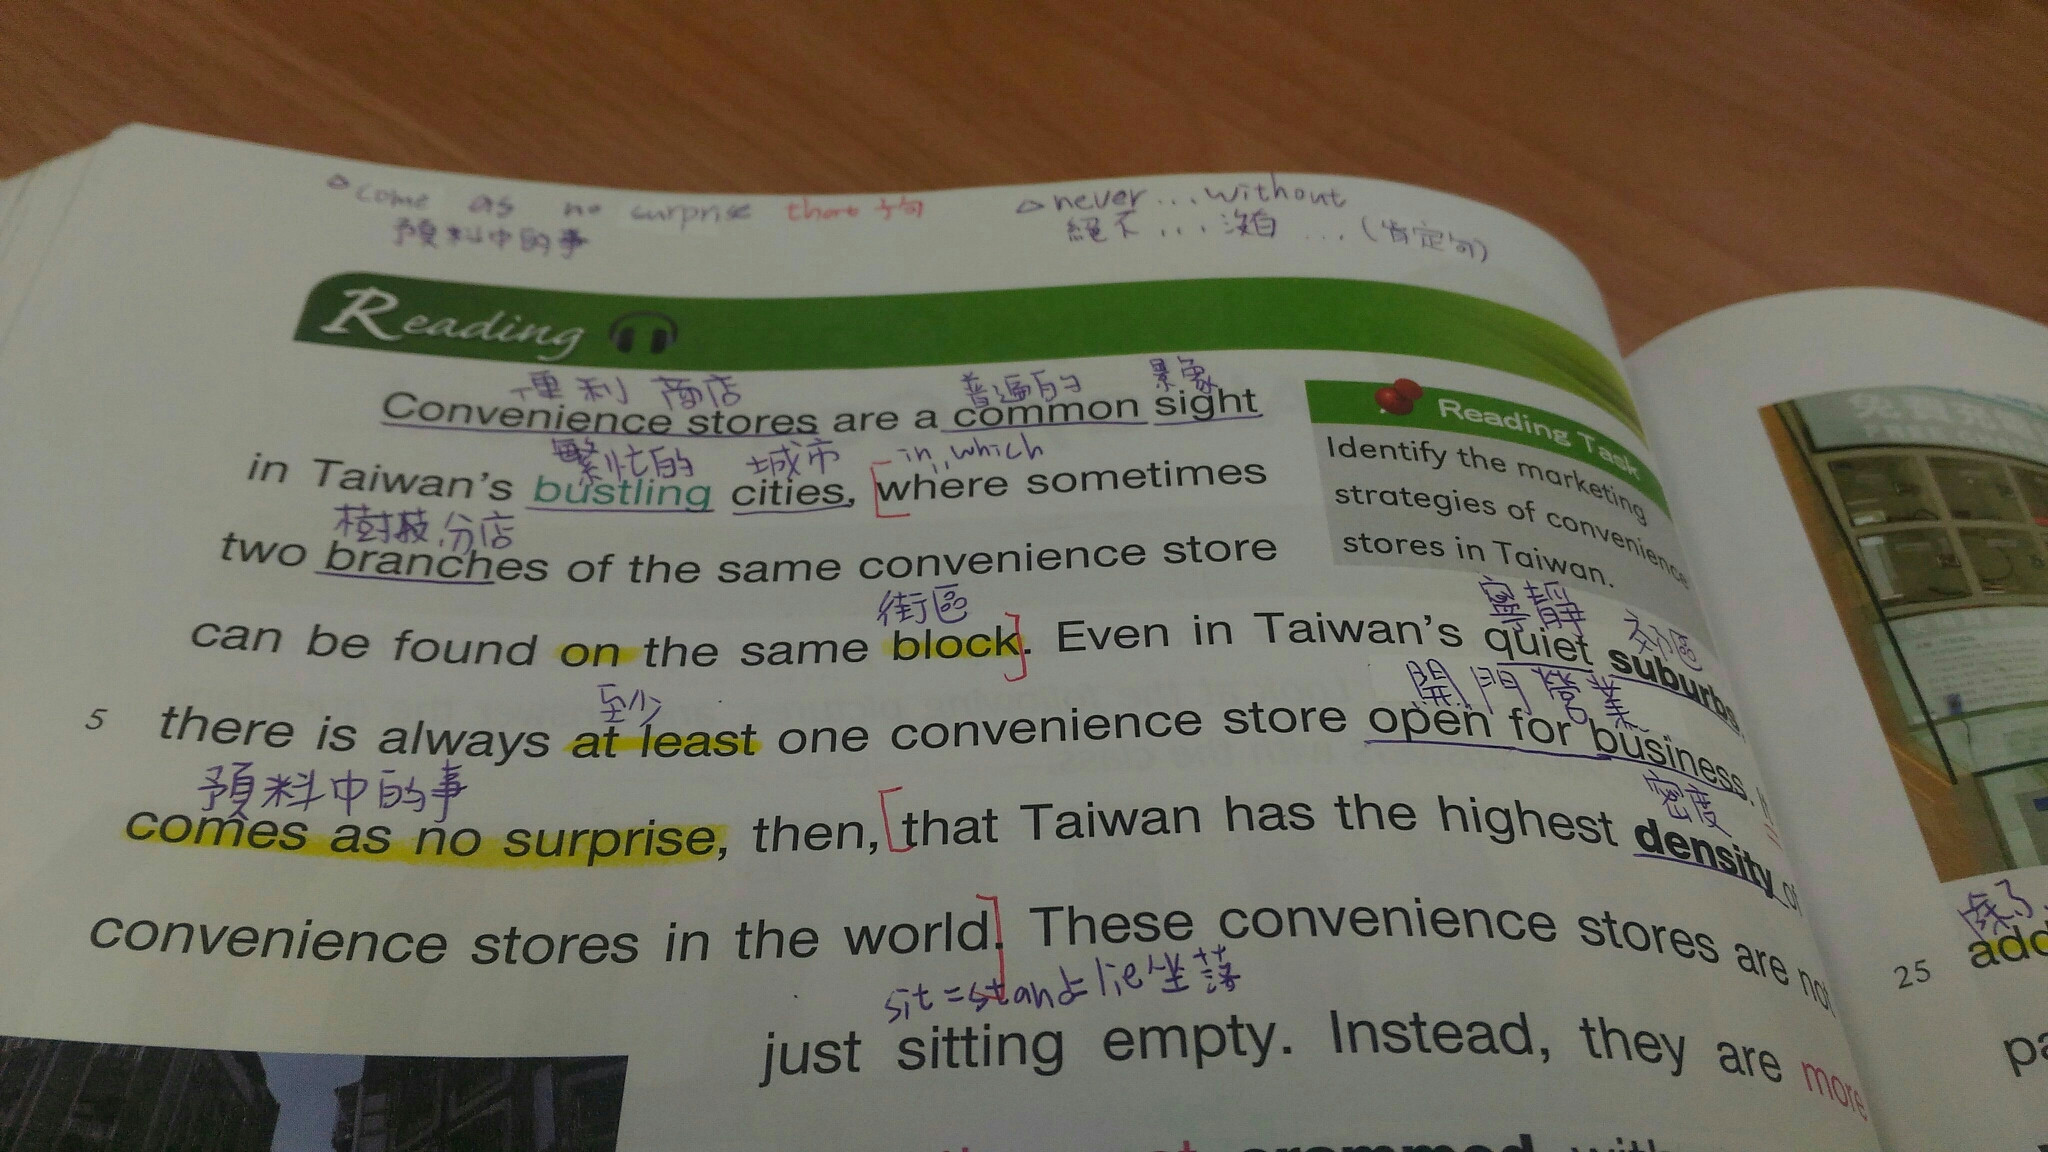 △come as no surprise that 子句
預料中的事
△never...without
絕不...沒有...(肯定句)
Reading
便利商店 普遍的 景象
Convenience stores are a common sight
繁忙的 城市 in which
in Taiwan's bustling cities, [where sometimes
樹枝 分店
two branches of the same convenience store
街區
can be found on the same block]. Even in Taiwan's quiet suburbs
寧靜 郊區
至少 開門營業
5 there is always at least one convenience store open for business.
預料中的事 密度
comes as no surprise, then, [that Taiwan has the highest density of
convenience stores in the world]. These convenience stores are not
sit=stand=lie 坐落
just sitting empty. Instead, they are more
crammed with
Reading Task
Identify the marketing
strategies of convenience
stores in Taiwan.
25